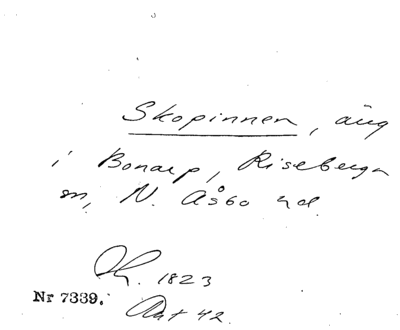 Skopinnen, äng
i Bonarp, Riseberga
sn, N. Åsbo hd.
Lh. 1823
Nr 7339.
Akt 42